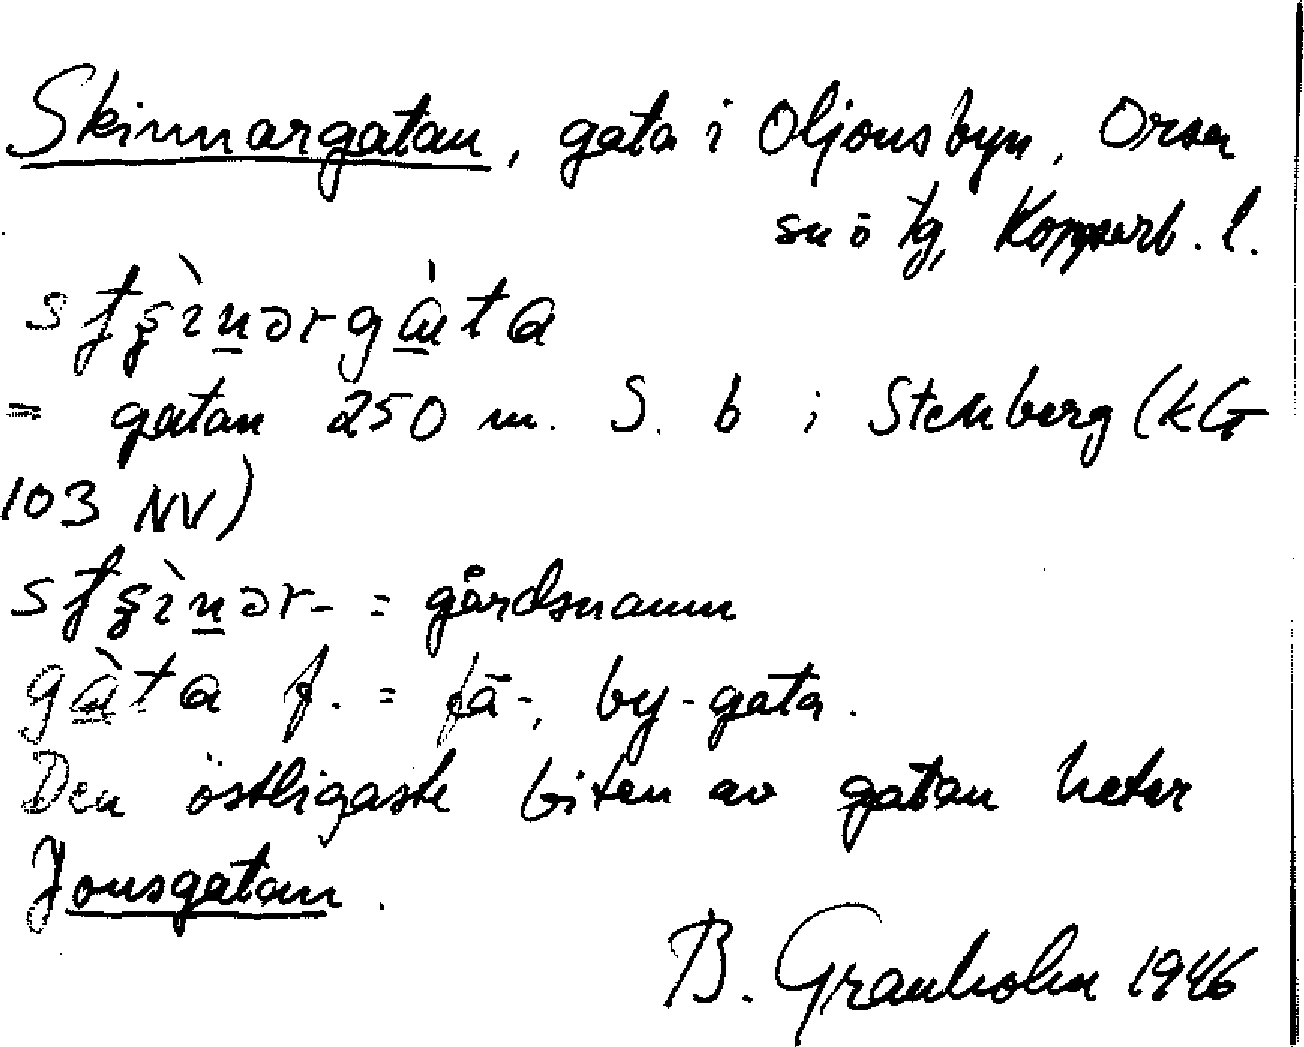 Skinnargatan, gata i Oljonsbyn, Orsa
sn ö tg, Kopparb. l.
= gatan 250 m. S. b i Stenberg (kG
103 NV)
= gårdsnamn
gàta f. = fä-, by-gata.
Den östligaste biten av gatan heter
Jonsgatan.
B. Granholm 1946